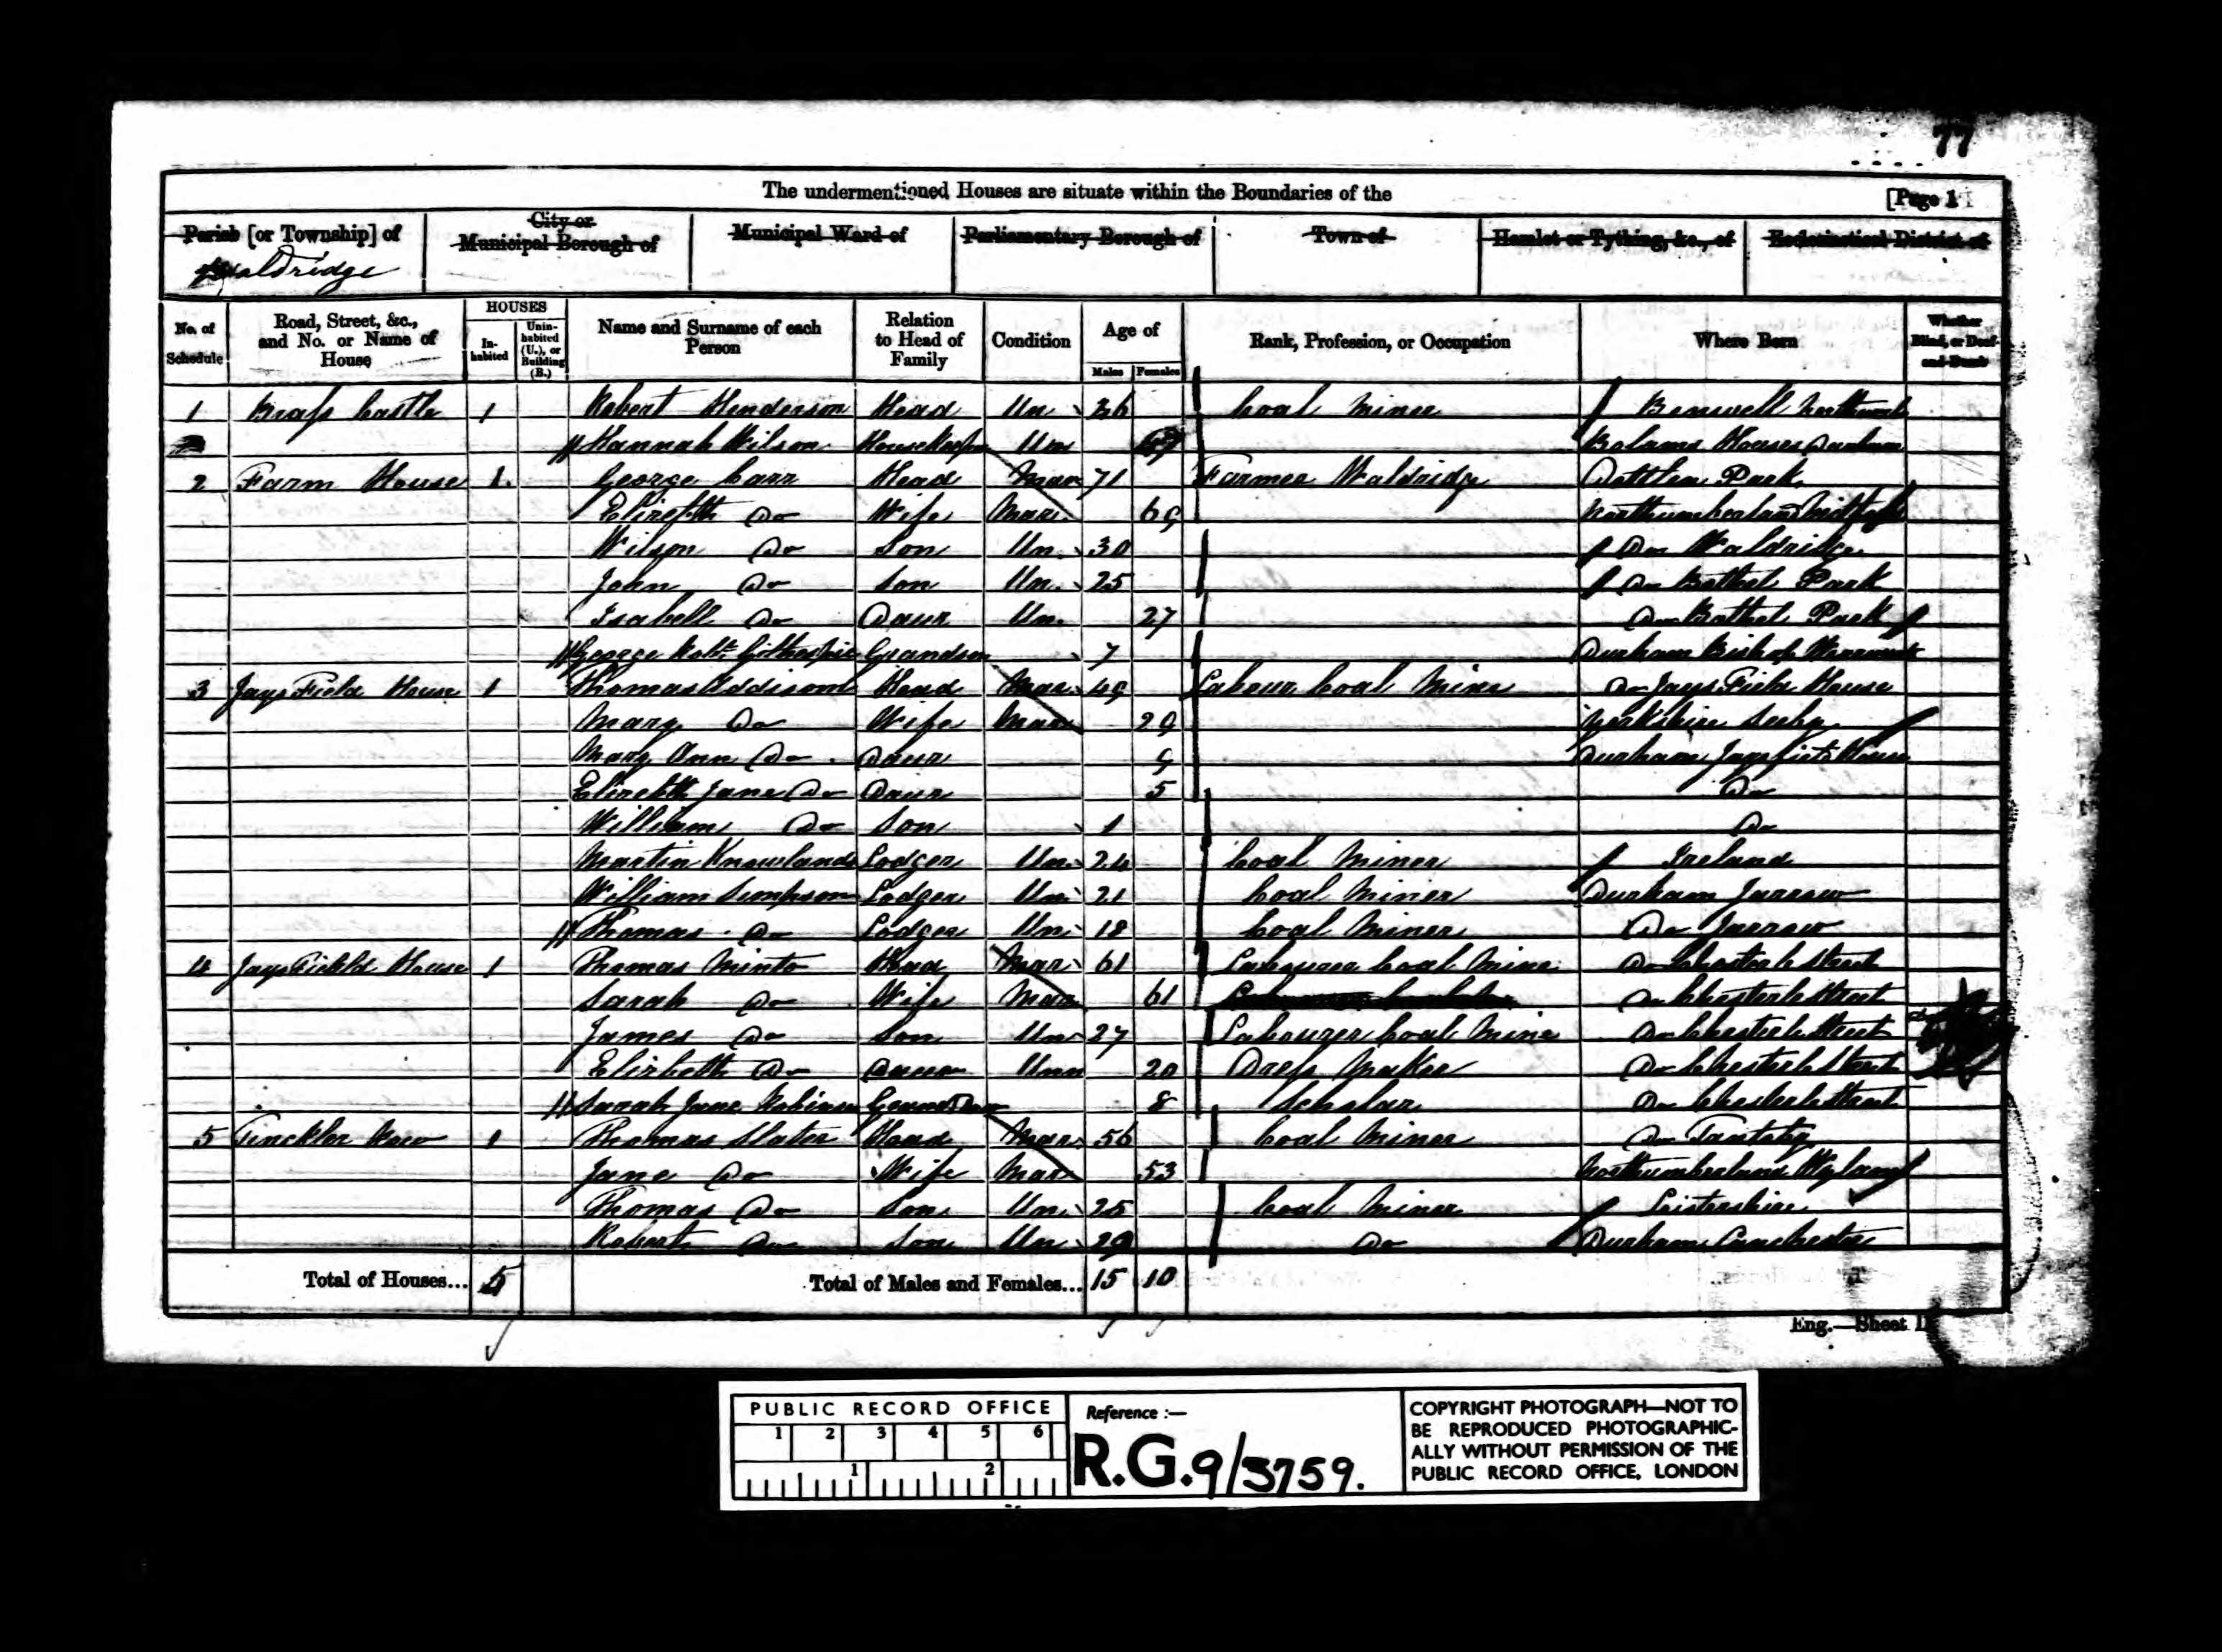 77
The undermentioned Houses are situate within the Boundaries of the [Page 1
Parish [or Township] of City or Municipal Borough of Municipal Ward of Parliamentary Borough of Town of Hamlet or Tything, &c., of Ecclesiastical District of
Waldridge
No. of Schedule Road, Street, &c., and No. or Name of House HOUSES Inhabited Uninhabited (U.), or Building (B.) Name and Surname of each Person Relation to Head of Family Condition Age of Males Females Rank, Profession, or Occupation Where Born Whether Blind, or Deaf-and-Dumb
1 Brass Castle 1 Robert Henderson Head Un 36 Coal Miner Benwell
Hannah Wilson Housekeeper Un Houses Durham
2 Farm House 1 George Carr Head Mar 71 Farmer Waldridge Park
Do Wife Mar. 69 Northumberland
Wilson Do Son Un. 30 Do
John Do Son Un. 25 Do Bothel Park
Isabell Do Daur Un. 27 Do Bothel Park
George Robt. Grandson 7 Durham Bishop
3 Jays Field House 1 Thomas Addison Head Mar 49 Labour Coal Mine Do Jays Field House
Mary Do Wife Mar 29 Yorkshire
Mary Ann Do Daur 9 Durham House
Jane Do Daur 5 Do
William Do Son 1 Do
Martin Lodger Un. 24 Coal Miner Ireland
William Simpson Lodger Un 21 Coal Miner Durham Jarrow
Thomas Do Lodger Un 18 Coal Miner Do Jarrow
4 House 1 Thomas Minto Head Mar 61 Labourer Coal Mine Do Chester le Street
Sarah Do Wife Mar 61 Do Chester le Street
James Do Son Un 27 Labourer Coal Mine Do Chester le Street
Elizbeth Do Daur 20 Dress Maker Do Chester le Street
Sarah Jane 8 Scholar Do Chester le Street
5 Tinckler Row 1 Thomas Slater Head Mar 56 Coal Miner Do
Jane Do Wife Mar 53 Northumberland Wylam
Thomas Do Son Un. 25 Coal Miner
Robert Do Son Un Do Durham Lanchester
Total of Houses... 5 Total of Males and Females... 15 10
Eng.—Sheet
PUBLIC RECORD OFFICE
1 2 3 4 5 6
1 2
Reference :—
R.G.9/3759.
COPYRIGHT PHOTOGRAPH—NOT TO
BE REPRODUCED PHOTOGRAPHIC-
ALLY WITHOUT PERMISSION OF THE
PUBLIC RECORD OFFICE, LONDON